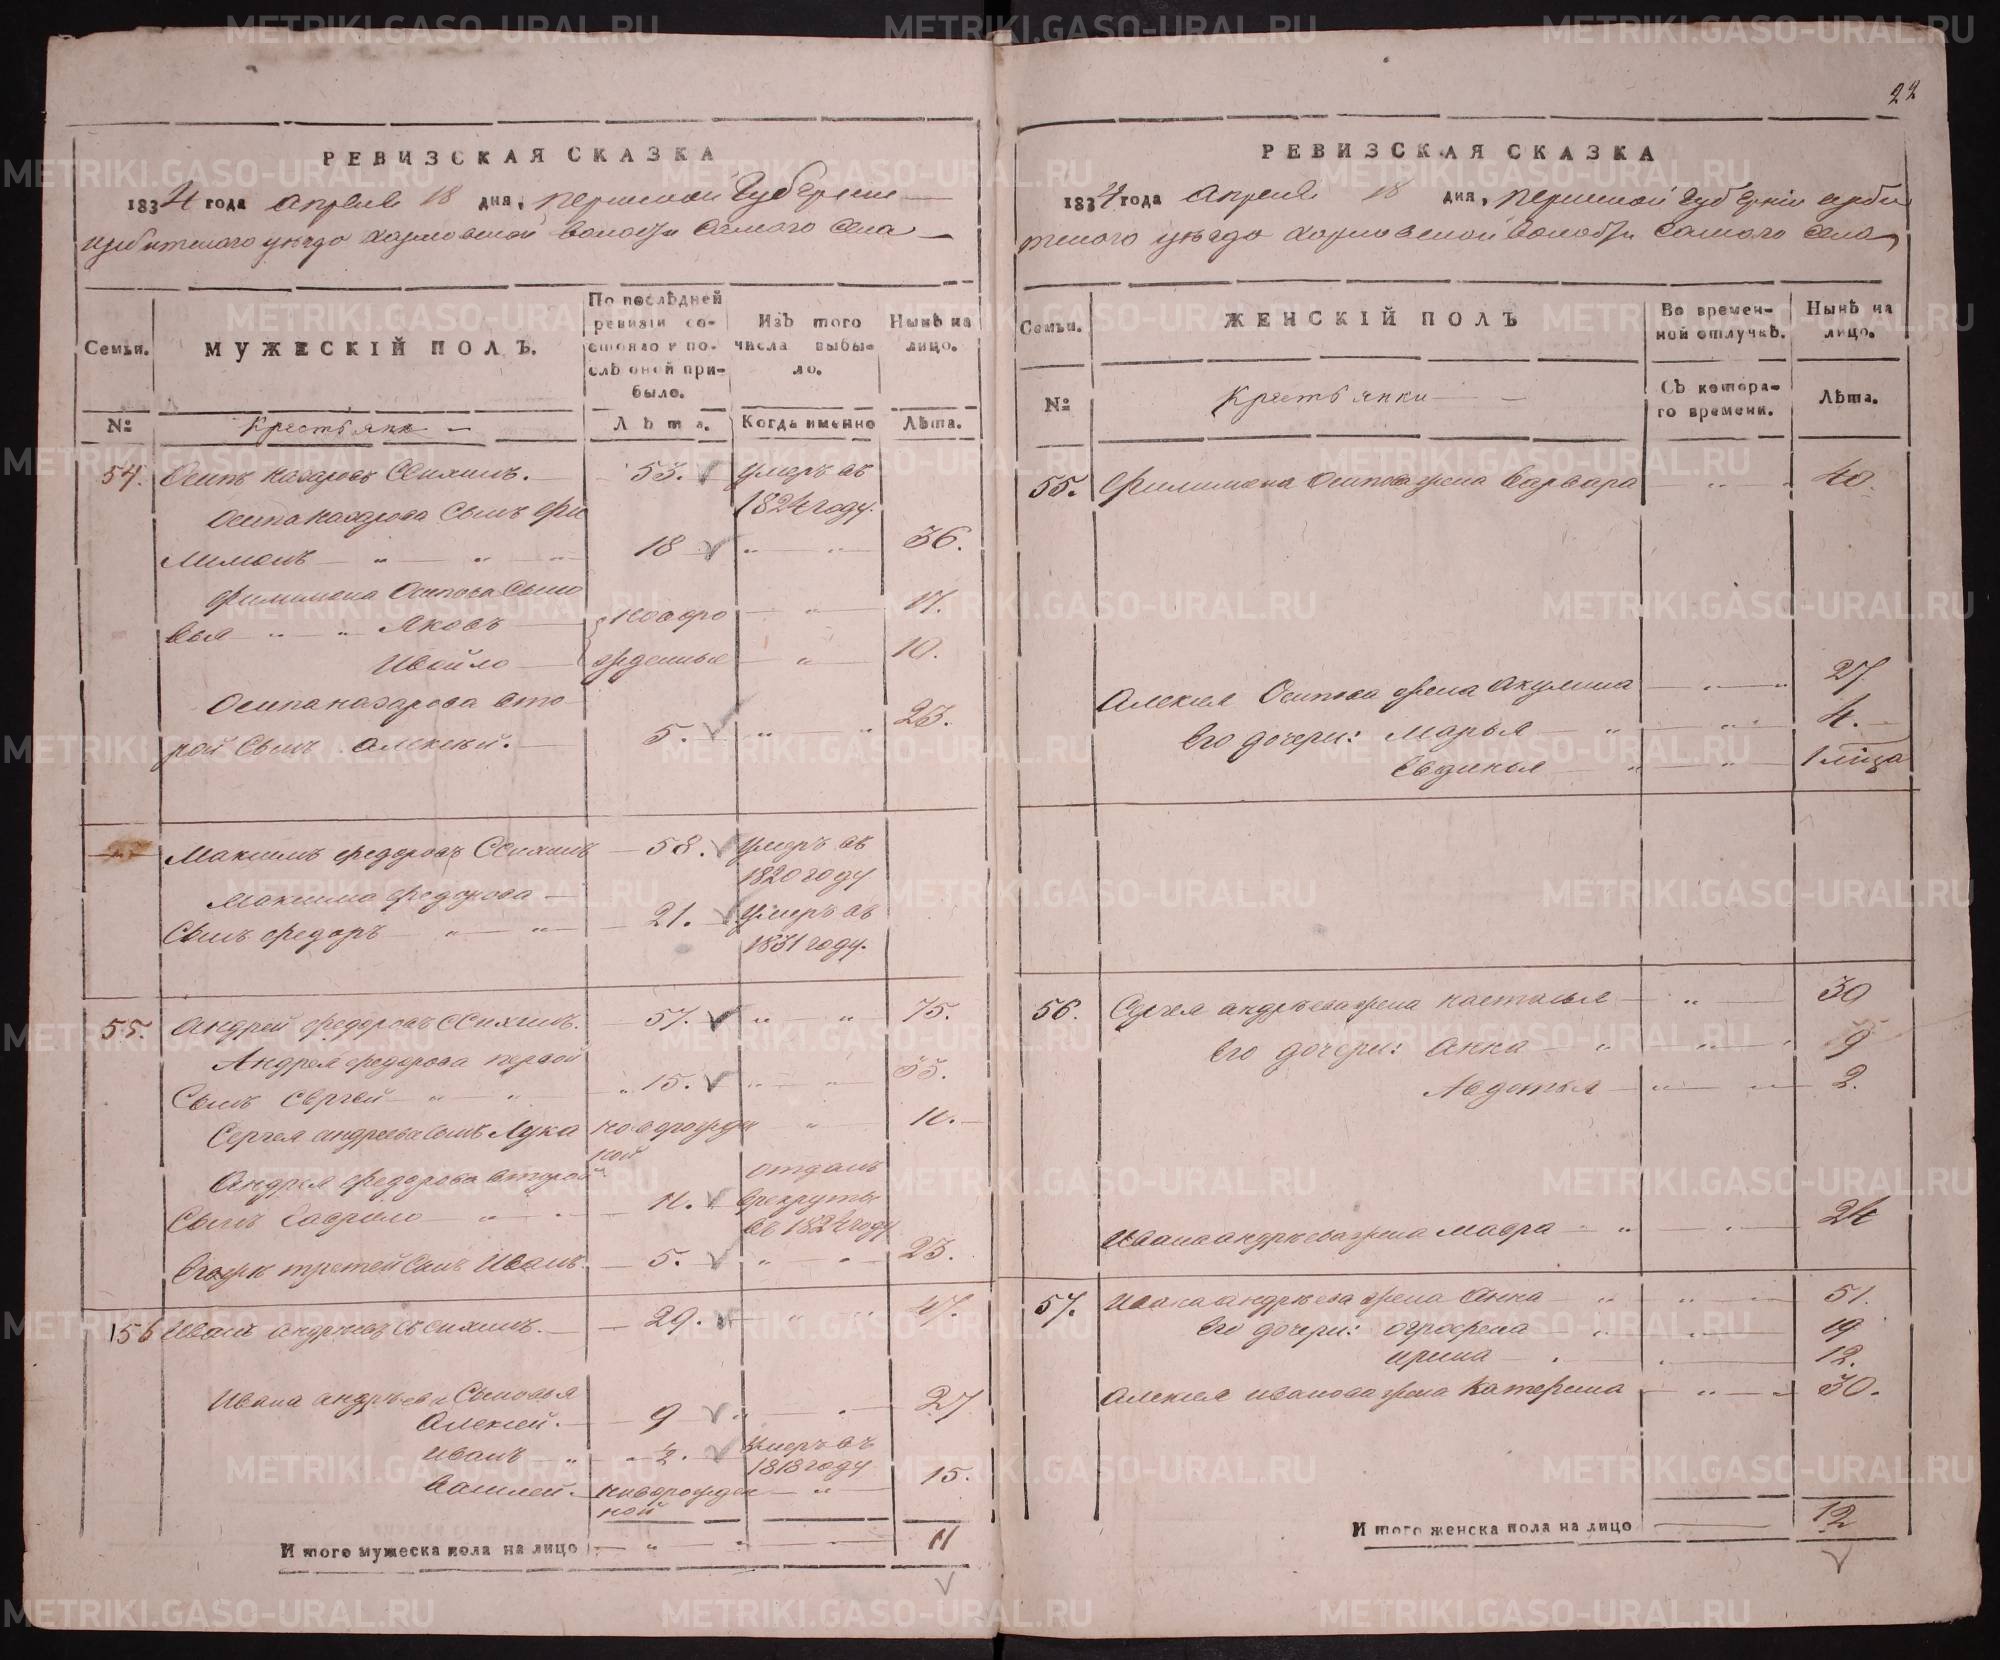 22
РЕВИЗСКАЯ СКАЗКА
1834 года апреля 18 дня, пермской губернии
ирбитского уезда харловской волости самого села
Семьи.
МУЖЕСКІЙ ПОЛЪ.
По послѣдней ревизіи состояло и послѣ оной прибыло.
Изъ того числа выбыло.
Нынѣ на лицо.
№
Крестьяне
Лѣта.
Когда именно
Лѣта.
54. Осипъ назаровъ 53. умеръ въ
1824 году.
Осипа назарова сынъ Фи
лимонъ 18 36.
Филимона Осипова сыно
вья Яковъ новоро 17.
Ивайло жденные 10.
Осипа назарова вто
рой сынъ алексей. 5. 23.
Максимъ федоровъ 58. умеръ въ
1820 году
Максима федорова
Сынъ федоръ 21. умеръ въ
1831 году.
55. андрей федоровъ 57. 75.
Андрея федорова первой
Сынъ Сергей 15. 33.
Сергея андреева сынъ Лука новорожден 11.
ной
Андрея федорова второй отданъ
Сынъ гаврило 11. в рекруты
въ 1824 году
Его же третей сынъ Иванъ. 5. 23.
56 Иванъ андреевъ 29. 47.
Ивана андреева Сыновья
алексей. 9 27
иванъ 2. умеръ въ
1818 году
василей. новорожден 15.
ной
Итого мужеска пола на лицо 11
РЕВИЗСКАЯ СКАЗКА
1834 года апреля 18 дня, пермской губернии ирби
тского уезда харловской волости самого села
Семьи.
ЖЕНСКІЙ ПОЛЪ
Во временной отлучкѣ.
Нынѣ на лицо.
№
Крестьянки
Съ котораго времени.
Лѣта.
55. Филимона Осипова жена варвара 40.
Алексея Осипова жена Акулина 27.
Его дочери: Марья 4.
Евдокья
56. Сергея андреева жена настасья 30
Его дочери: Анна 9
Авдотья 2.
Ивана андреева жена мавра 24
57. Ивана андреева жена Анна 51.
Его дочери: огрофена 19
ирина 12.
Алексея иванова жена Катерина 30.
Итого женска пола на лицо 12
METRIKI.GASO-URAL.RU